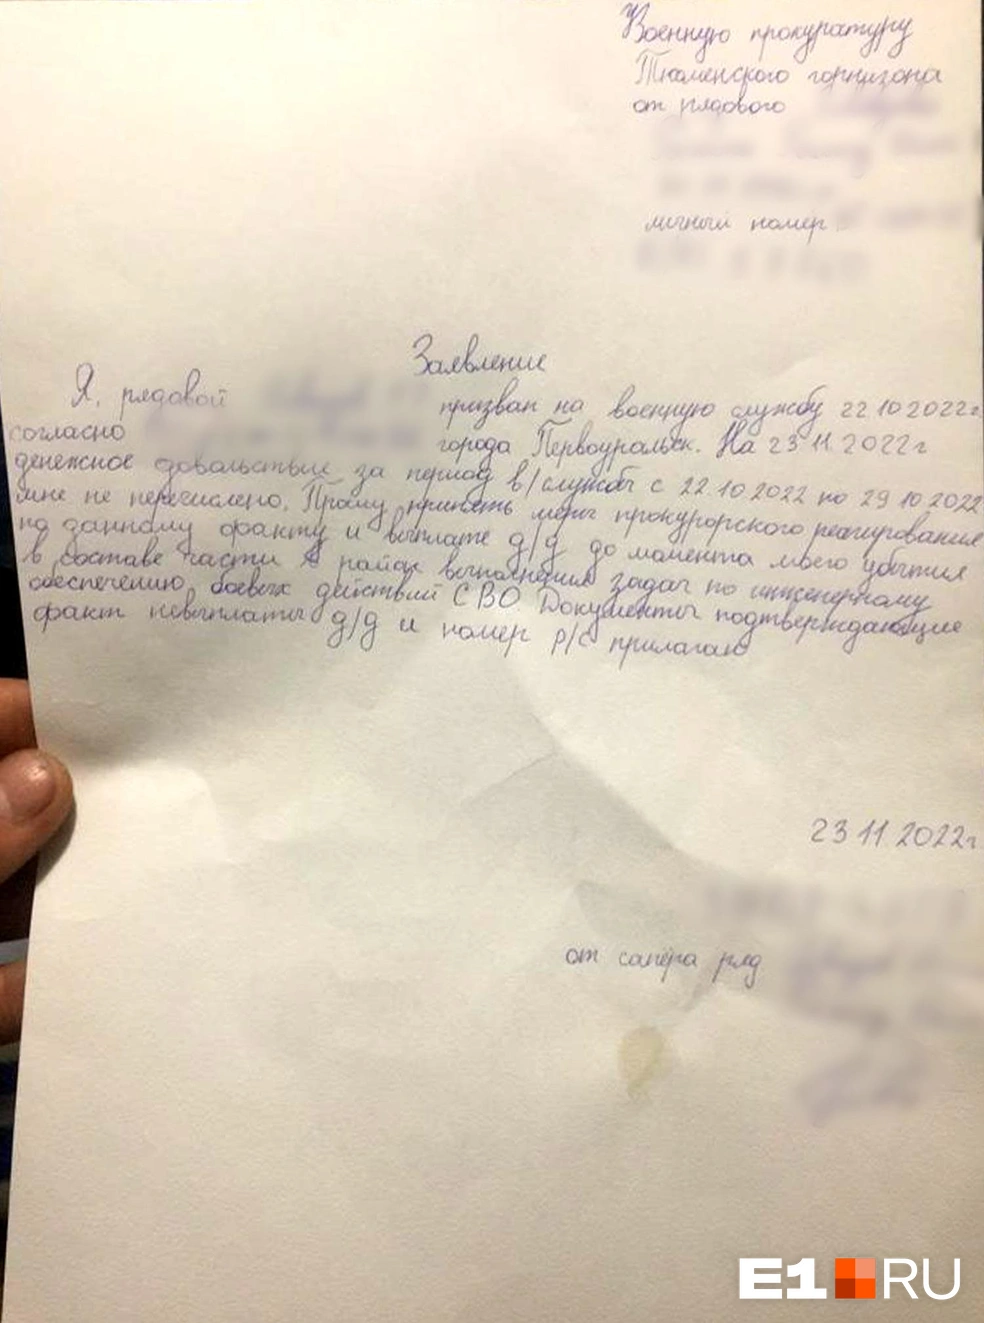 Военную прокуратуру
Тюменского горнизона
от рядового
личный номер
Заявление
Я, рядовой призван на военную службу 22.10.2022г.
согласно города Первоуральск. На 23.11.2022г
денежное довольствие за период в/службы с 22.10.2022 по 29.10.2022
мне не перечислено. Прошу принять меры прокурорского реагирования
по данному факту и выплате д/д до момента моего убытия
в составе части в район выполнения задач по инженерному
обеспечению, боевых действий СВО. Документы подтверждающие
факт невыплаты д/д и номер р/с прилагаю
23.11.2022г
от сапёра ряд
E1.RU